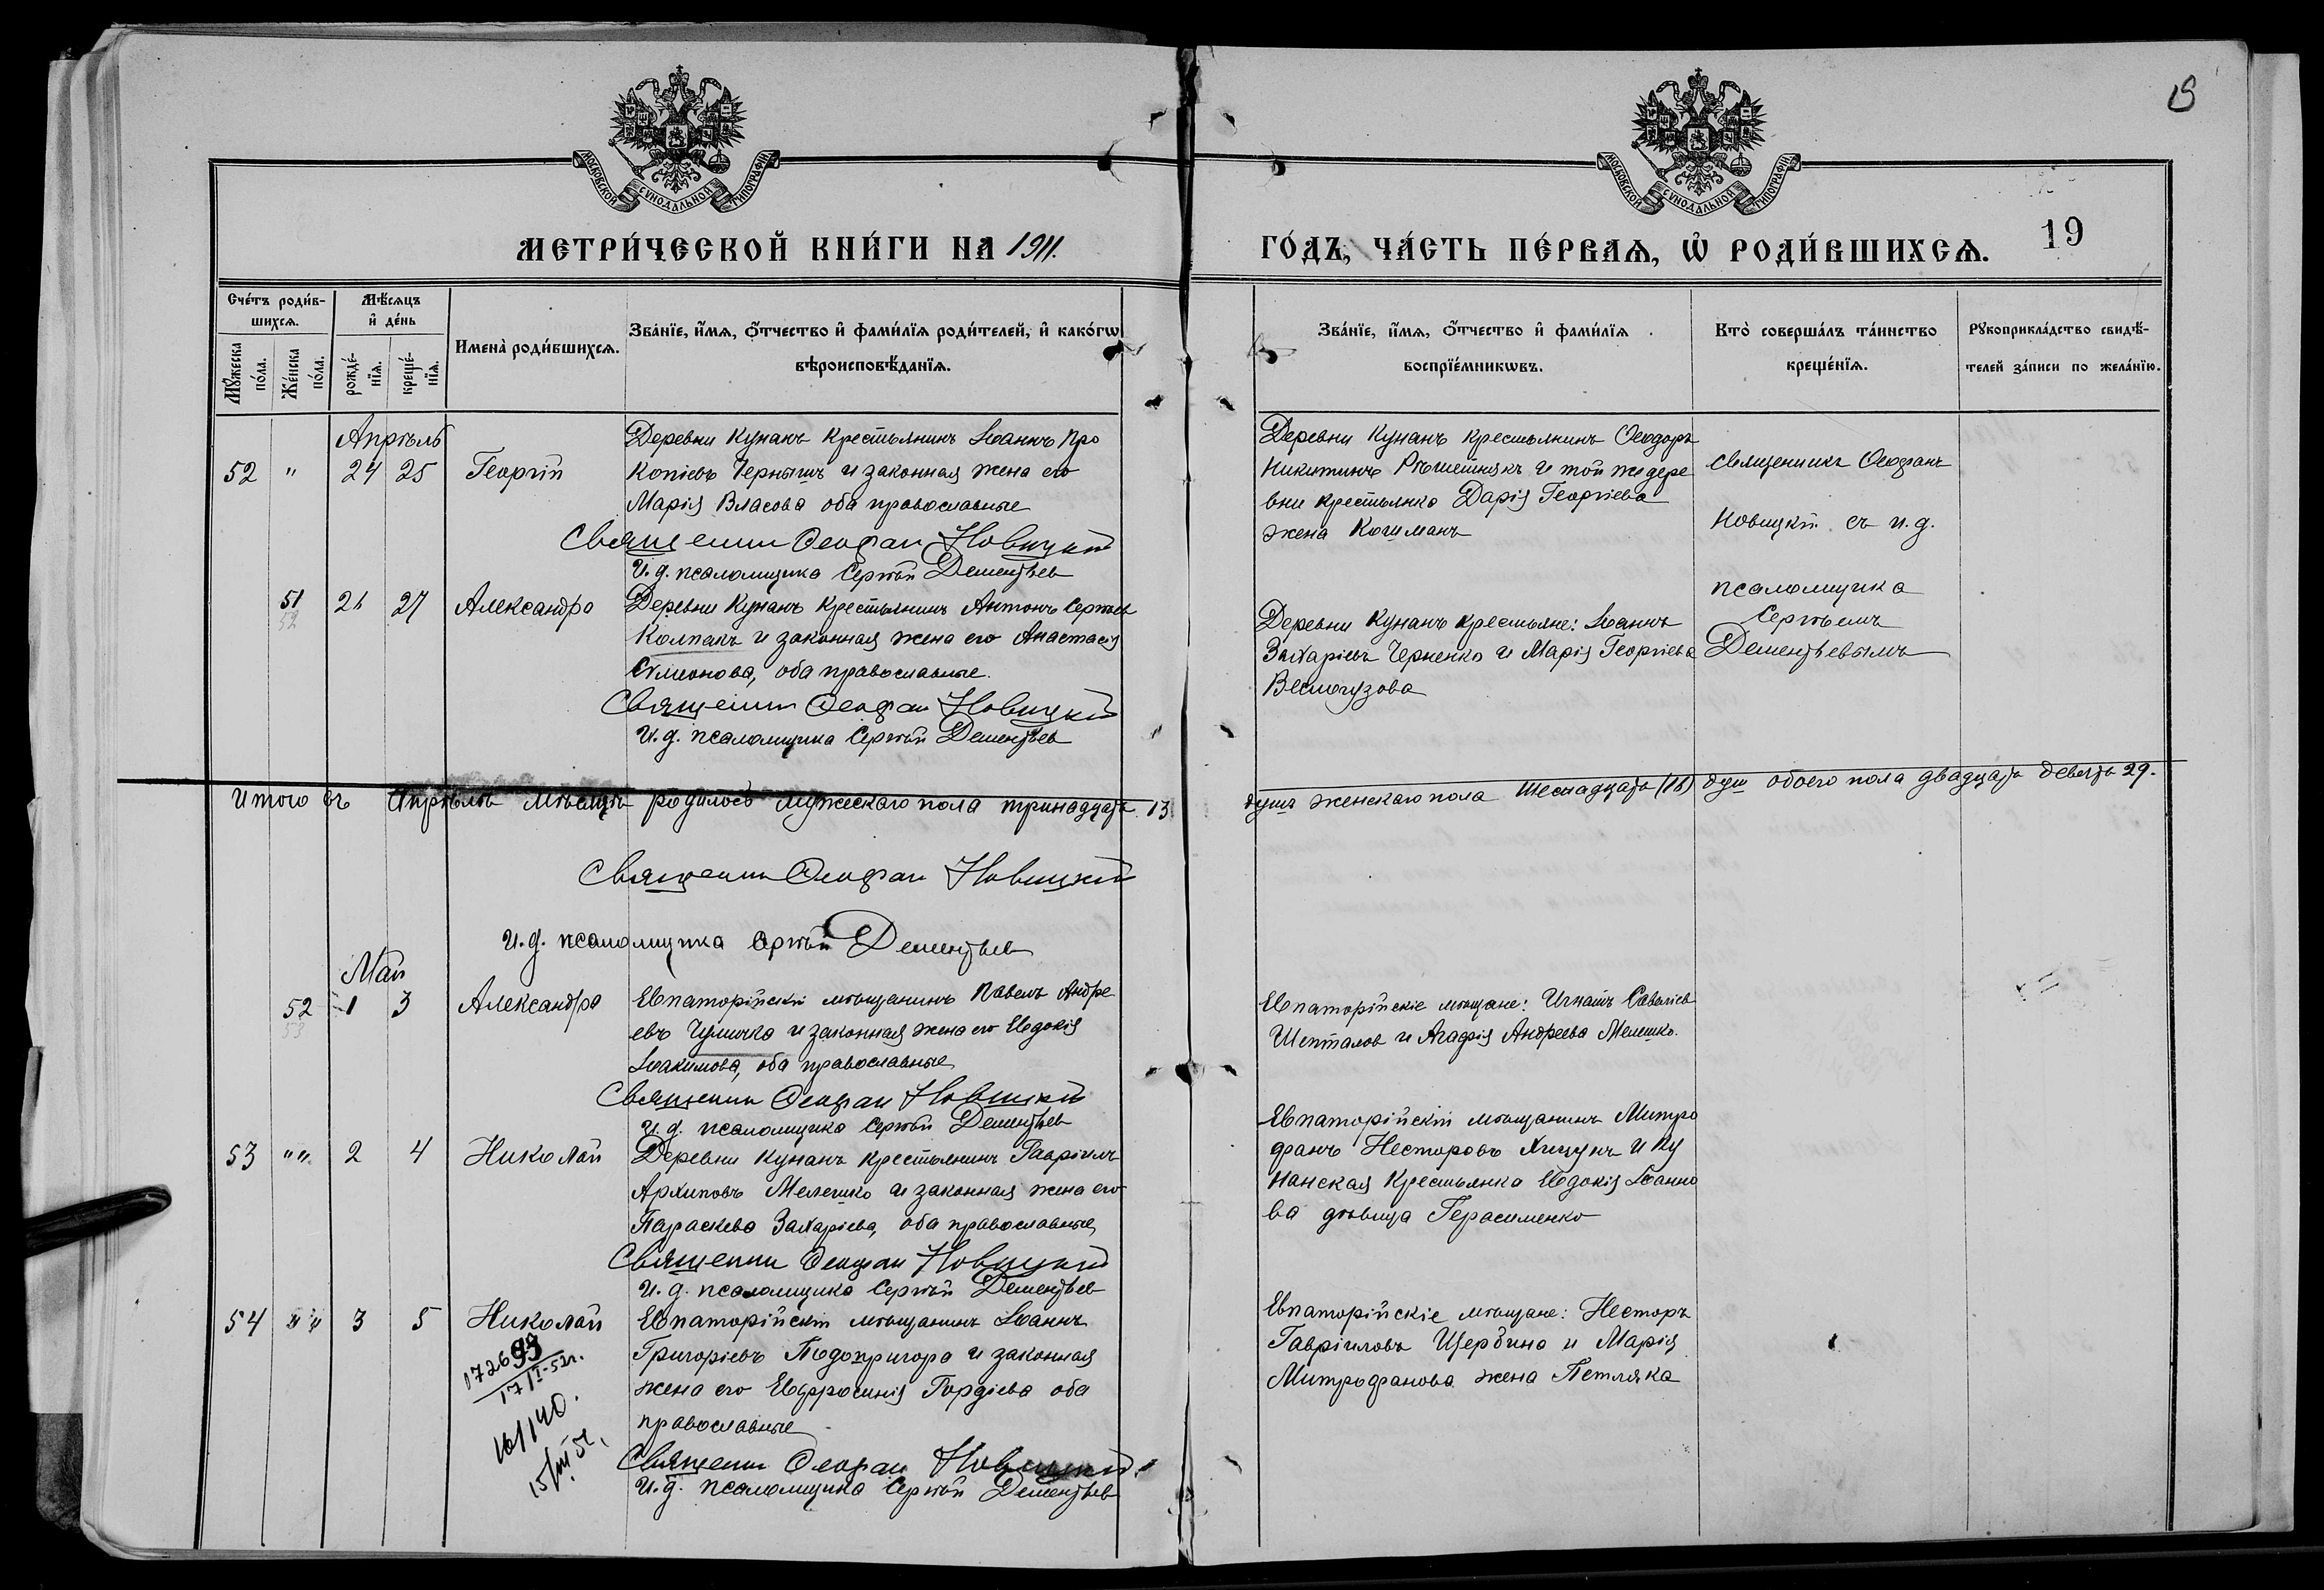 19
МОСКОВСКОЙ СѴНОДАЛЬНОЙ ТИПОГРАФІИ
МОСКОВСКОЙ СѴНОДАЛЬНОЙ ТИПОГРАФІИ
МЕТРИ́ЧЕСКОЙ КНИ́ГИ НА 1911.
ГО́ДЪ, ЧА́СТЬ ПЕ́РВАѦ, Ѡ҆ РОДИ́ВШИХСѦ. 19
Сче́тъ роди́в-
шихсѧ.
Мꙋ́жеска по́ла.
Же́нска по́ла.
Мѣ́сѧцъ
и҆ де́нь
рожде́-нїѧ.
креще́-нїѧ.
Имена̀ роди́вшихсѧ.
Зва́нїе, и҆́мѧ, ѻ҆́тчество и҆ фами́лїѧ роди́телей, и҆ како́гѡ
вѣроисповѣ́данїѧ.
Зва́нїе, и҆́мѧ, ѻ҆́тчество и҆ фами́лїѧ
воспрїе́мникѡвъ.
Кто̀ соверша́лъ та́инство
креще́нїѧ.
Рꙋкоприкла́дство свидѣ́-
телей за́писи по жела́нїю.
Апрѣль
52 " 24 25 Георгій
Деревни Кунанъ крестьянинъ Іоаннъ Про
копіевъ Чернышъ и законная жена его
Марія Власова оба православные
Священник Ѳеофан Новицкій
И. д. псаломщика Сергѣй Дементьев
Деревни Кунанъ крестьянинъ Ѳеодоръ
Никитинъ Рѣшетникъ и той же дере
вни крестьянка Дарія Георгіева
жена Когиманъ
священникъ Ѳеофанъ
Новицкій съ и. д.
псаломщика
Сергѣемъ
Дементьевымъ
51 26 27 Александра
52
Деревни Кунанъ крестьянинъ Антонъ Сергѣев
Колпакъ и законная жена его Анастасія
Симеонова, оба православные.
Священник Ѳеофан Новицкій
И. д. псаломщика Сергѣй Дементьев
Деревни Кунанъ крестьяне: Іоаннъ
Захаріевъ Черненко и Марія Георгіева
Итого въ Апрѣлѣ мѣсяцѣ родилось мужескаго пола тринадцать 13
душъ женскаго пола шестнадцать (16) душ обоего пола двадцать девять 29.
Священник Ѳеофан Новицкій
И. д. псаломщика Сергѣй Дементьев
Май
52 1 3 Александра
53
Евпаторійскій мѣщанинъ Павелъ Андре
евъ Чумичка и законная жена его Евдокія
Іоакимова, оба православные
Священник Ѳеофан Новицкій
И. д. псаломщика Сергѣй Дементьев
Евпаторійскіе мѣщане: Игнатъ Савыліев
Шепталов и Агафія Андреева Мелешко.
53 "" 2 4 Николай
Деревни Кунанъ крестьянинъ Гавріилъ
Архиповъ Мелешко и законная жена его
Параскева Захаріева, оба православные
Священник Ѳеофан Новицкій
И. д. псаломщика Сергѣй Дементьев
Евпаторійскій мѣщанинъ Митро
фанъ Несторовъ Хицунъ и Ку
нанская крестьянка Евдокія Іоанно
ва дѣвица Герасименко
54 "" 3 5 Николай
Евпаторійскій мѣщанинъ Іоаннъ
Григоріевъ Подопригора и законная
жена его Евфросинія Гордіева оба
православные
Священник Ѳеофан Новицкій
И. д. псаломщика Сергѣй Дементьев
Евпаторійскіе мѣщане: Несторъ
Гавріиловъ Щербина и Марія
Митрофанова жена Петляка
172699
17 II-52г.
161140.
15/III 51.